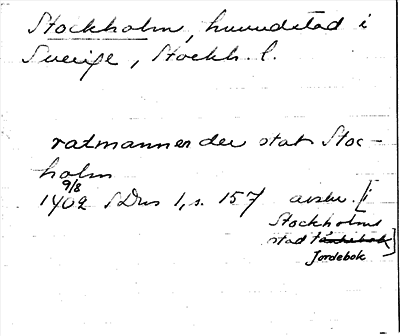 Stockholm, huvudstad i
Sverige, Stockh. l.
ratmanner der stat Stoc-
holm
9/8
1402 SDns 1, s. 157 avskr. [i
Stockholms
stad
Jordebok]